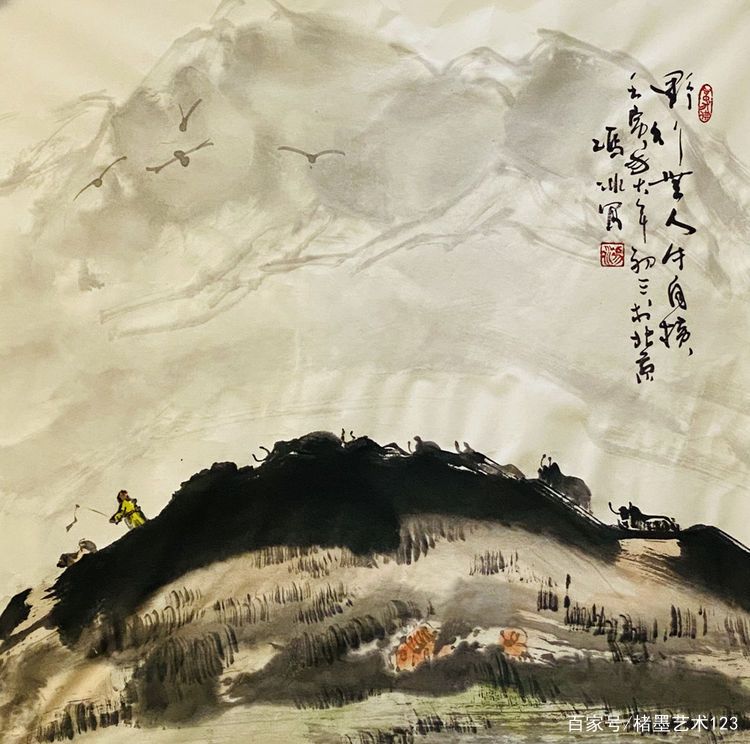 野行無人牛自横
壬寅大年初三于北京
冯冰写
百家号/楮墨艺术123